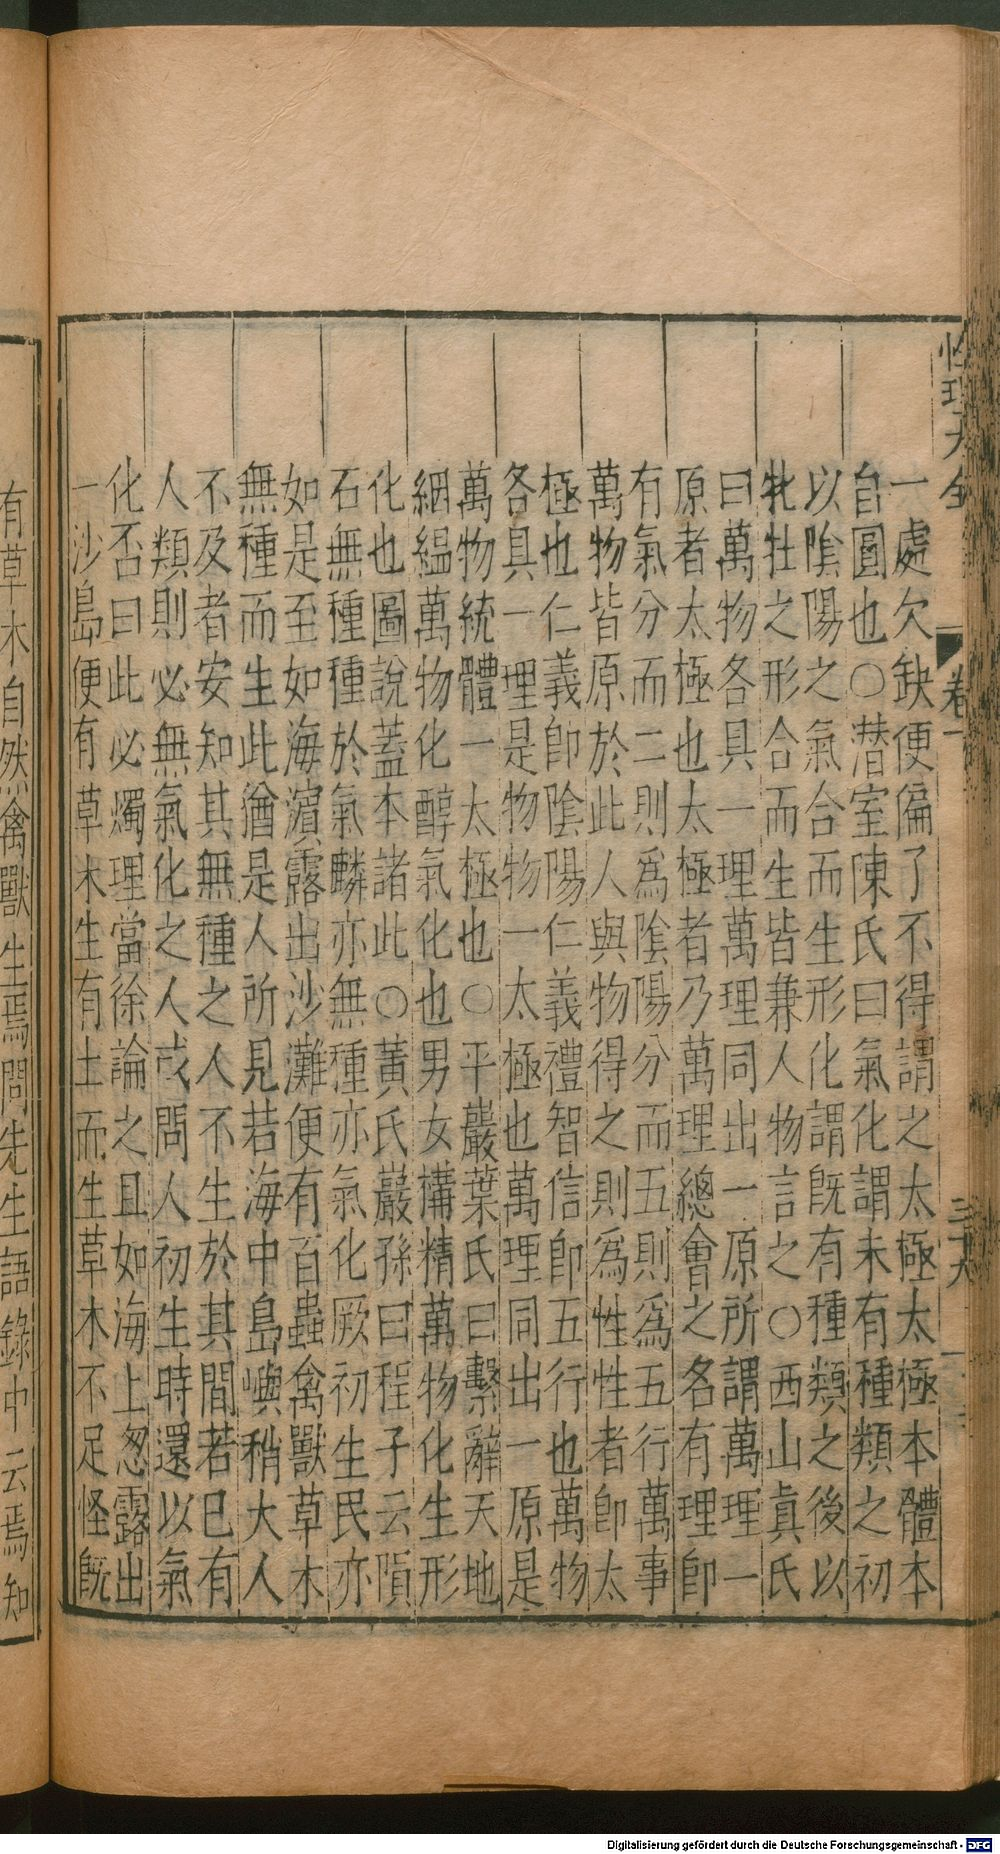 性理大全 卷一 三十六
一處欠缺便偏了不得謂之太極太極本體本
自圓也○潜室陳氏曰氣化謂未有種類之初
以陰陽之氣合而生形化謂旣有種類之後以
牝牡之形合而生皆兼人物言之○西山眞氏
曰萬物各具一理萬理同出一原所謂萬理一
原者太極也太極者乃萬理總會之名有理卽
有氣分而二則爲陰陽分而五則爲五行萬事
萬物皆原於此人與物得之則爲性性者卽太
極也仁義卽陰陽仁義禮智信卽五行也萬物
各具一理是物物一太極也萬理同出一原是
萬物統體一太極也○平巖葉氏曰繫辭天地
絪縕萬物化醇氣化也男女構精萬物化生形
化也圖說蓋本諸此○黃氏巖孫曰程子云隕
石無種種於氣麟亦無種亦氣化厥初生民亦
如是至如海濵露出沙灘便有百蟲禽獸草木
無種而生此猶是人所見若海中島嶼稍大人
不及者安知其無種之人不生於其間若已有
人類則必無氣化之人或問人初生時還以氣
化否曰此必燭理當徐論之且如海上忽露出
一沙島便有草木生有土而生草木不足怪旣
有草木自然禽獸生焉問先生語錄中云焉知
Digitalisierung gefördert durch die Deutsche Forschungsgemeinschaft - DFG